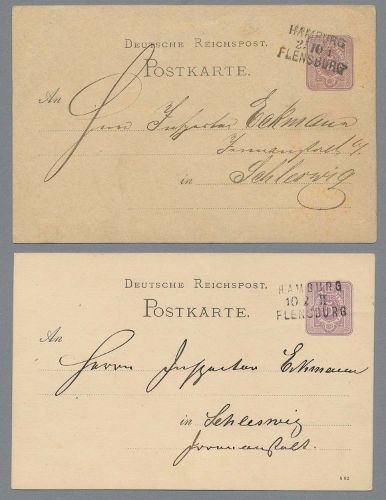 DEUTSCHE REICHSPOST.
HAMBURG
2/10 I
FLENSBURG
POSTKARTE.
An
Herrn Inspector Eckmann
Irrenanstalt
in Schleswig
DEUTSCHE REICHSPOST.
HAMBURG
10 2 II
FLENSBURG
POSTKARTE.
An
Herrn Inspector Eckmann
in Schleswig
Irrenanstalt.